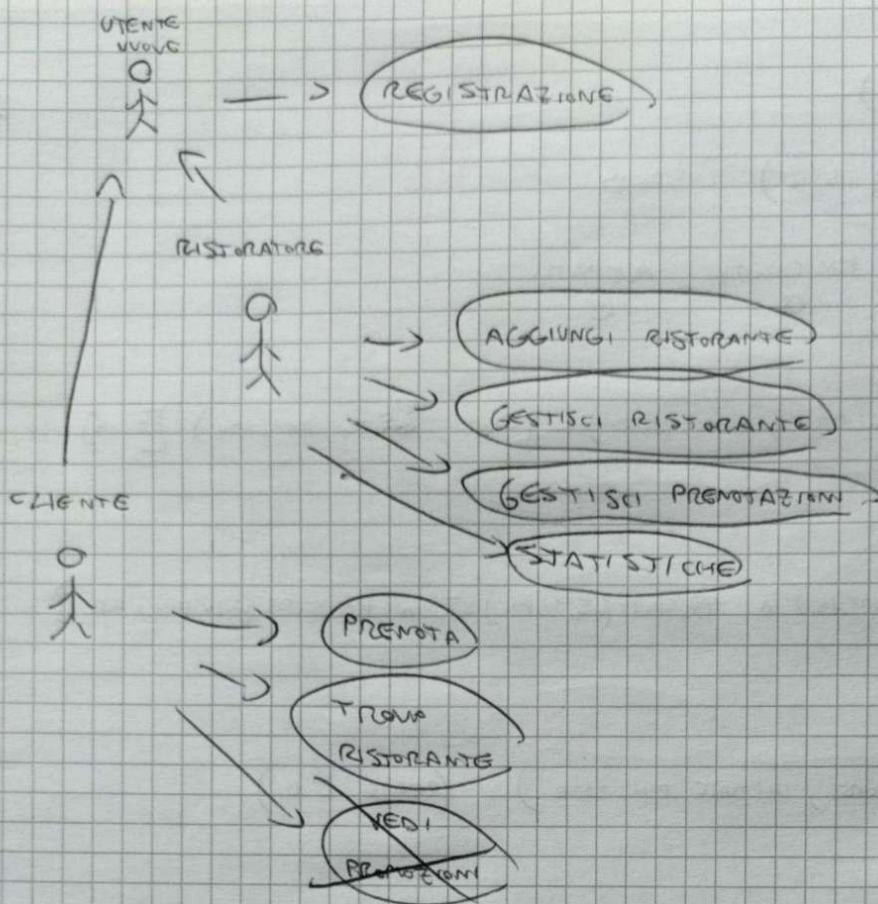 UTENTE
NUOVO
REGISTRAZIONE
RISTORATORE
AGGIUNGI RISTORANTE
GESTISCI RISTORANTE
GESTISCI PRENOTAZIONI
STATISTICHE
CLIENTE
PRENOTA
TROVA
RISTORANTE
VEDI
PROMOZIONI